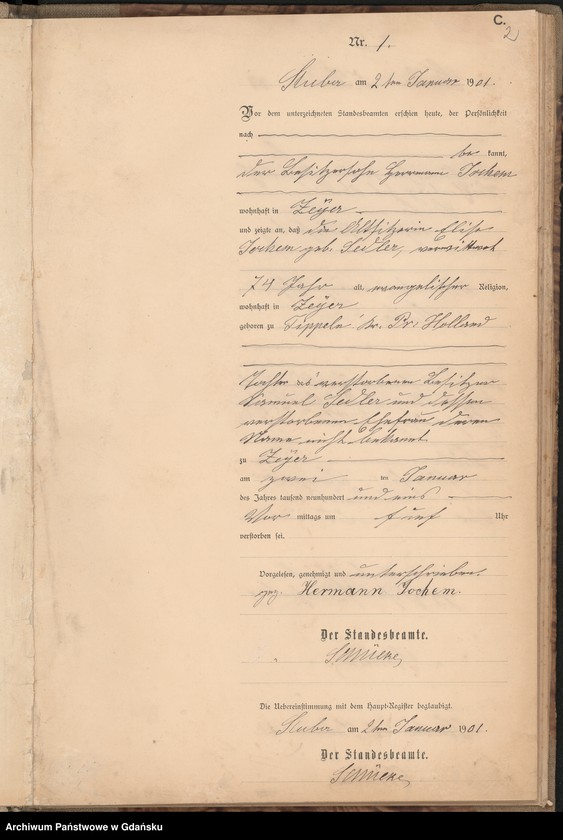 C.
2
Nr. 1.
Stuba am 2ten Januar 1901.
Vor dem unterzeichneten Standesbeamten erschien heute, der Persönlichkeit
nach
be kannt,
der Besitzersohn Herrmann Jochem
wohnhaft in Zeÿer
und zeigte an, daß die Altsitzerin Elise
Jochem geb. Sedler, verwittwet
74 Jahr alt, evangelischer Religion,
wohnhaft in Zeÿer
geboren zu Tippeln Kr. Pr: Holland
Tochter des verstorbenen Besitzer
Samuel Sedler und dessen
verstorbenen Ehefrau deren
Name nicht bekannt
zu Zeÿer
am zwei ten Januar
des Jahres tausend neunhundert und eins
Vor mittags um fünf Uhr
verstorben sei.
Vorgelesen, genehmigt und unterschrieben.
gez. Hermann Jochem.
Der Standesbeamte.
Die Uebereinstimmung mit dem Haupt-Register beglaubigt.
Stuba am 2ten Januar 1901.
Der Standesbeamte.
Archiwum Państwowe w Gdańsku